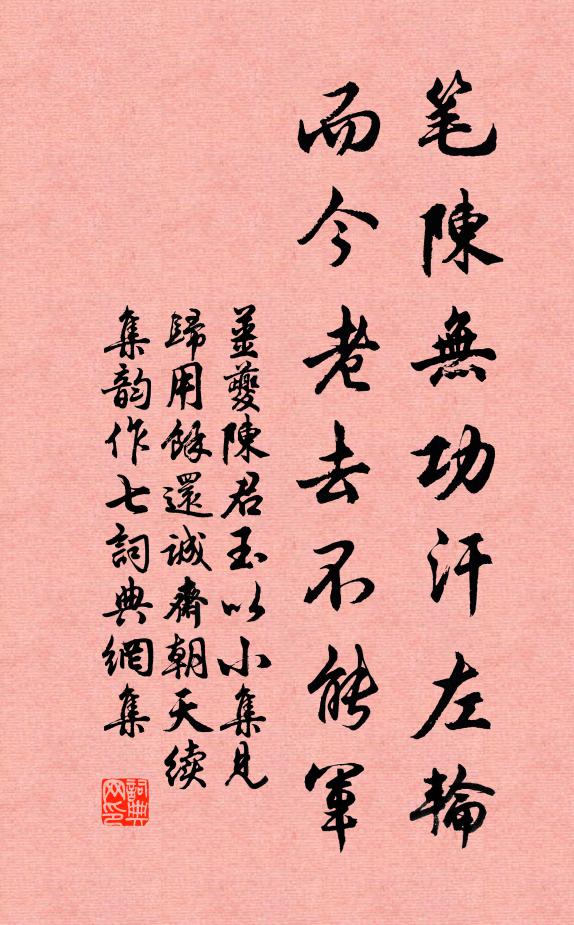 笔陳無功汗左輪
而今老去不能軍
姜夔陳君玉以小集見
歸用餘還誠齋朝天续
集韵作七詞典網集
詞典网印